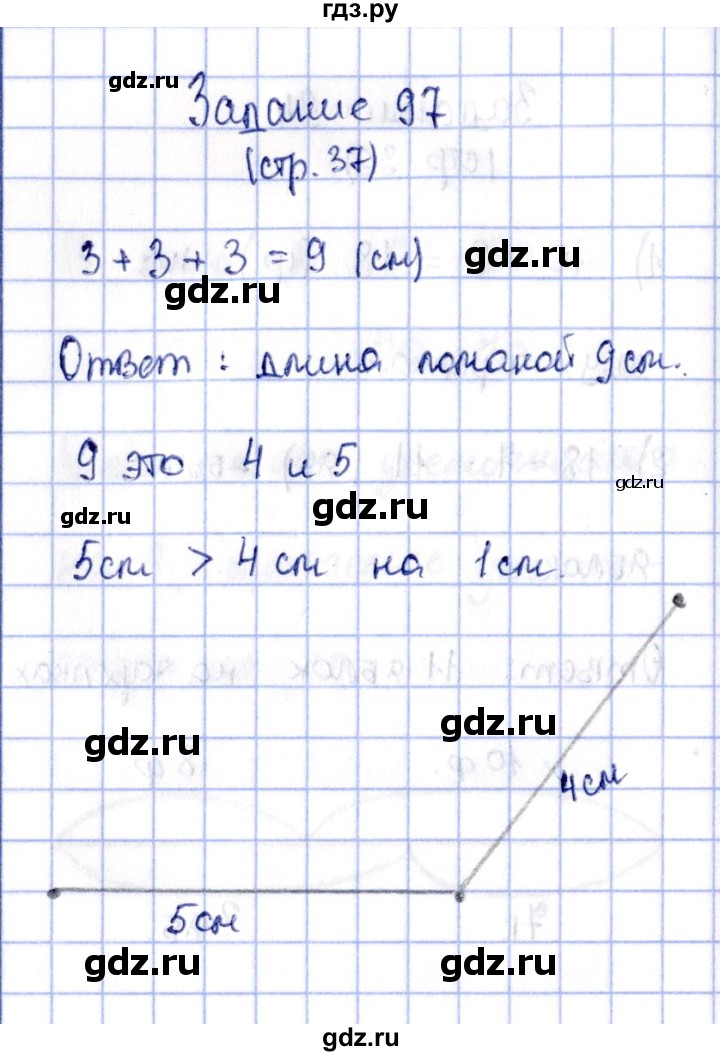 гдз.ру
gdz.ru
Задание 97
(стр. 37)
3 + 3 + 3 = 9 (см)
gdz.ru
gdz.ru
Ответ : длина ломаной 9 см.
9 это 4 и 5
gdz.ru
gdz.ru
gdz.ru
5см > 4 см на 1 см.
gdz.ru
gdz.ru
4 см
5 см
gdz.ru
gdz.ru
gdz.ru